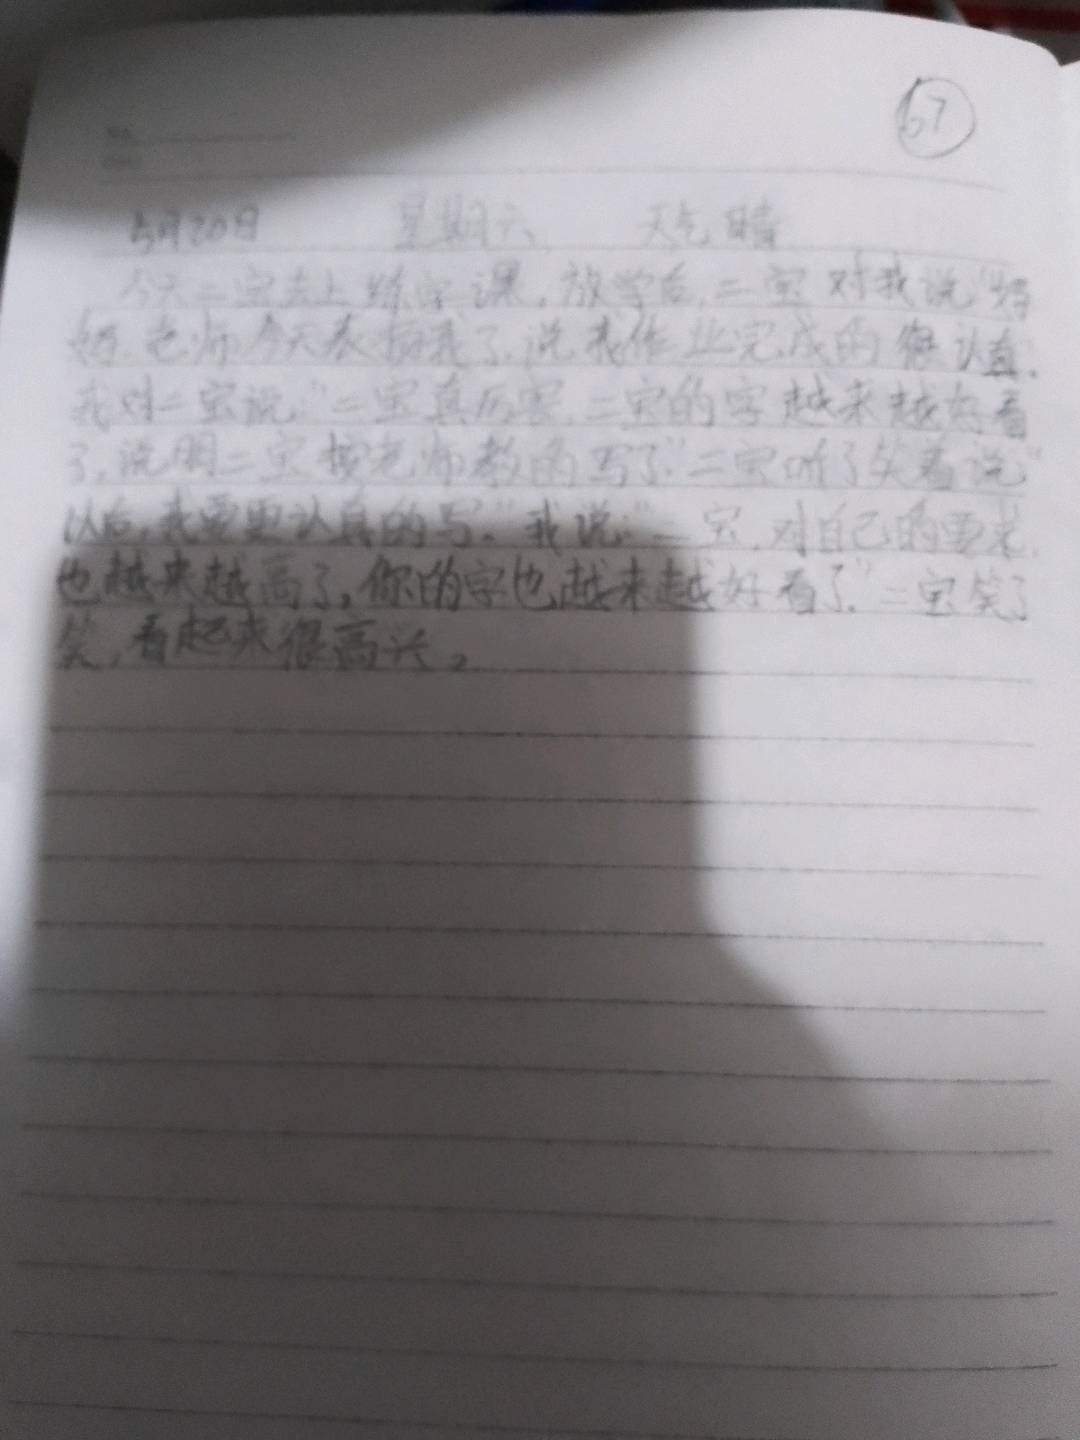 67
5月20日 星期六 天气晴
今天二宝去上练字课,放学后,二宝对我说"妈
妈,老师今天表扬我了,说我作业完成的很认真.
我对二宝说:"二宝真厉害,二宝的字越来越好看
了,说明二宝按老师教的写了"二宝听了笑着说"
以后,我要更认真的写."我说:"二宝,对自己的要求,
也越来越高了,你的字也越来越好看了."二宝笑了
笑,看起来很高兴。